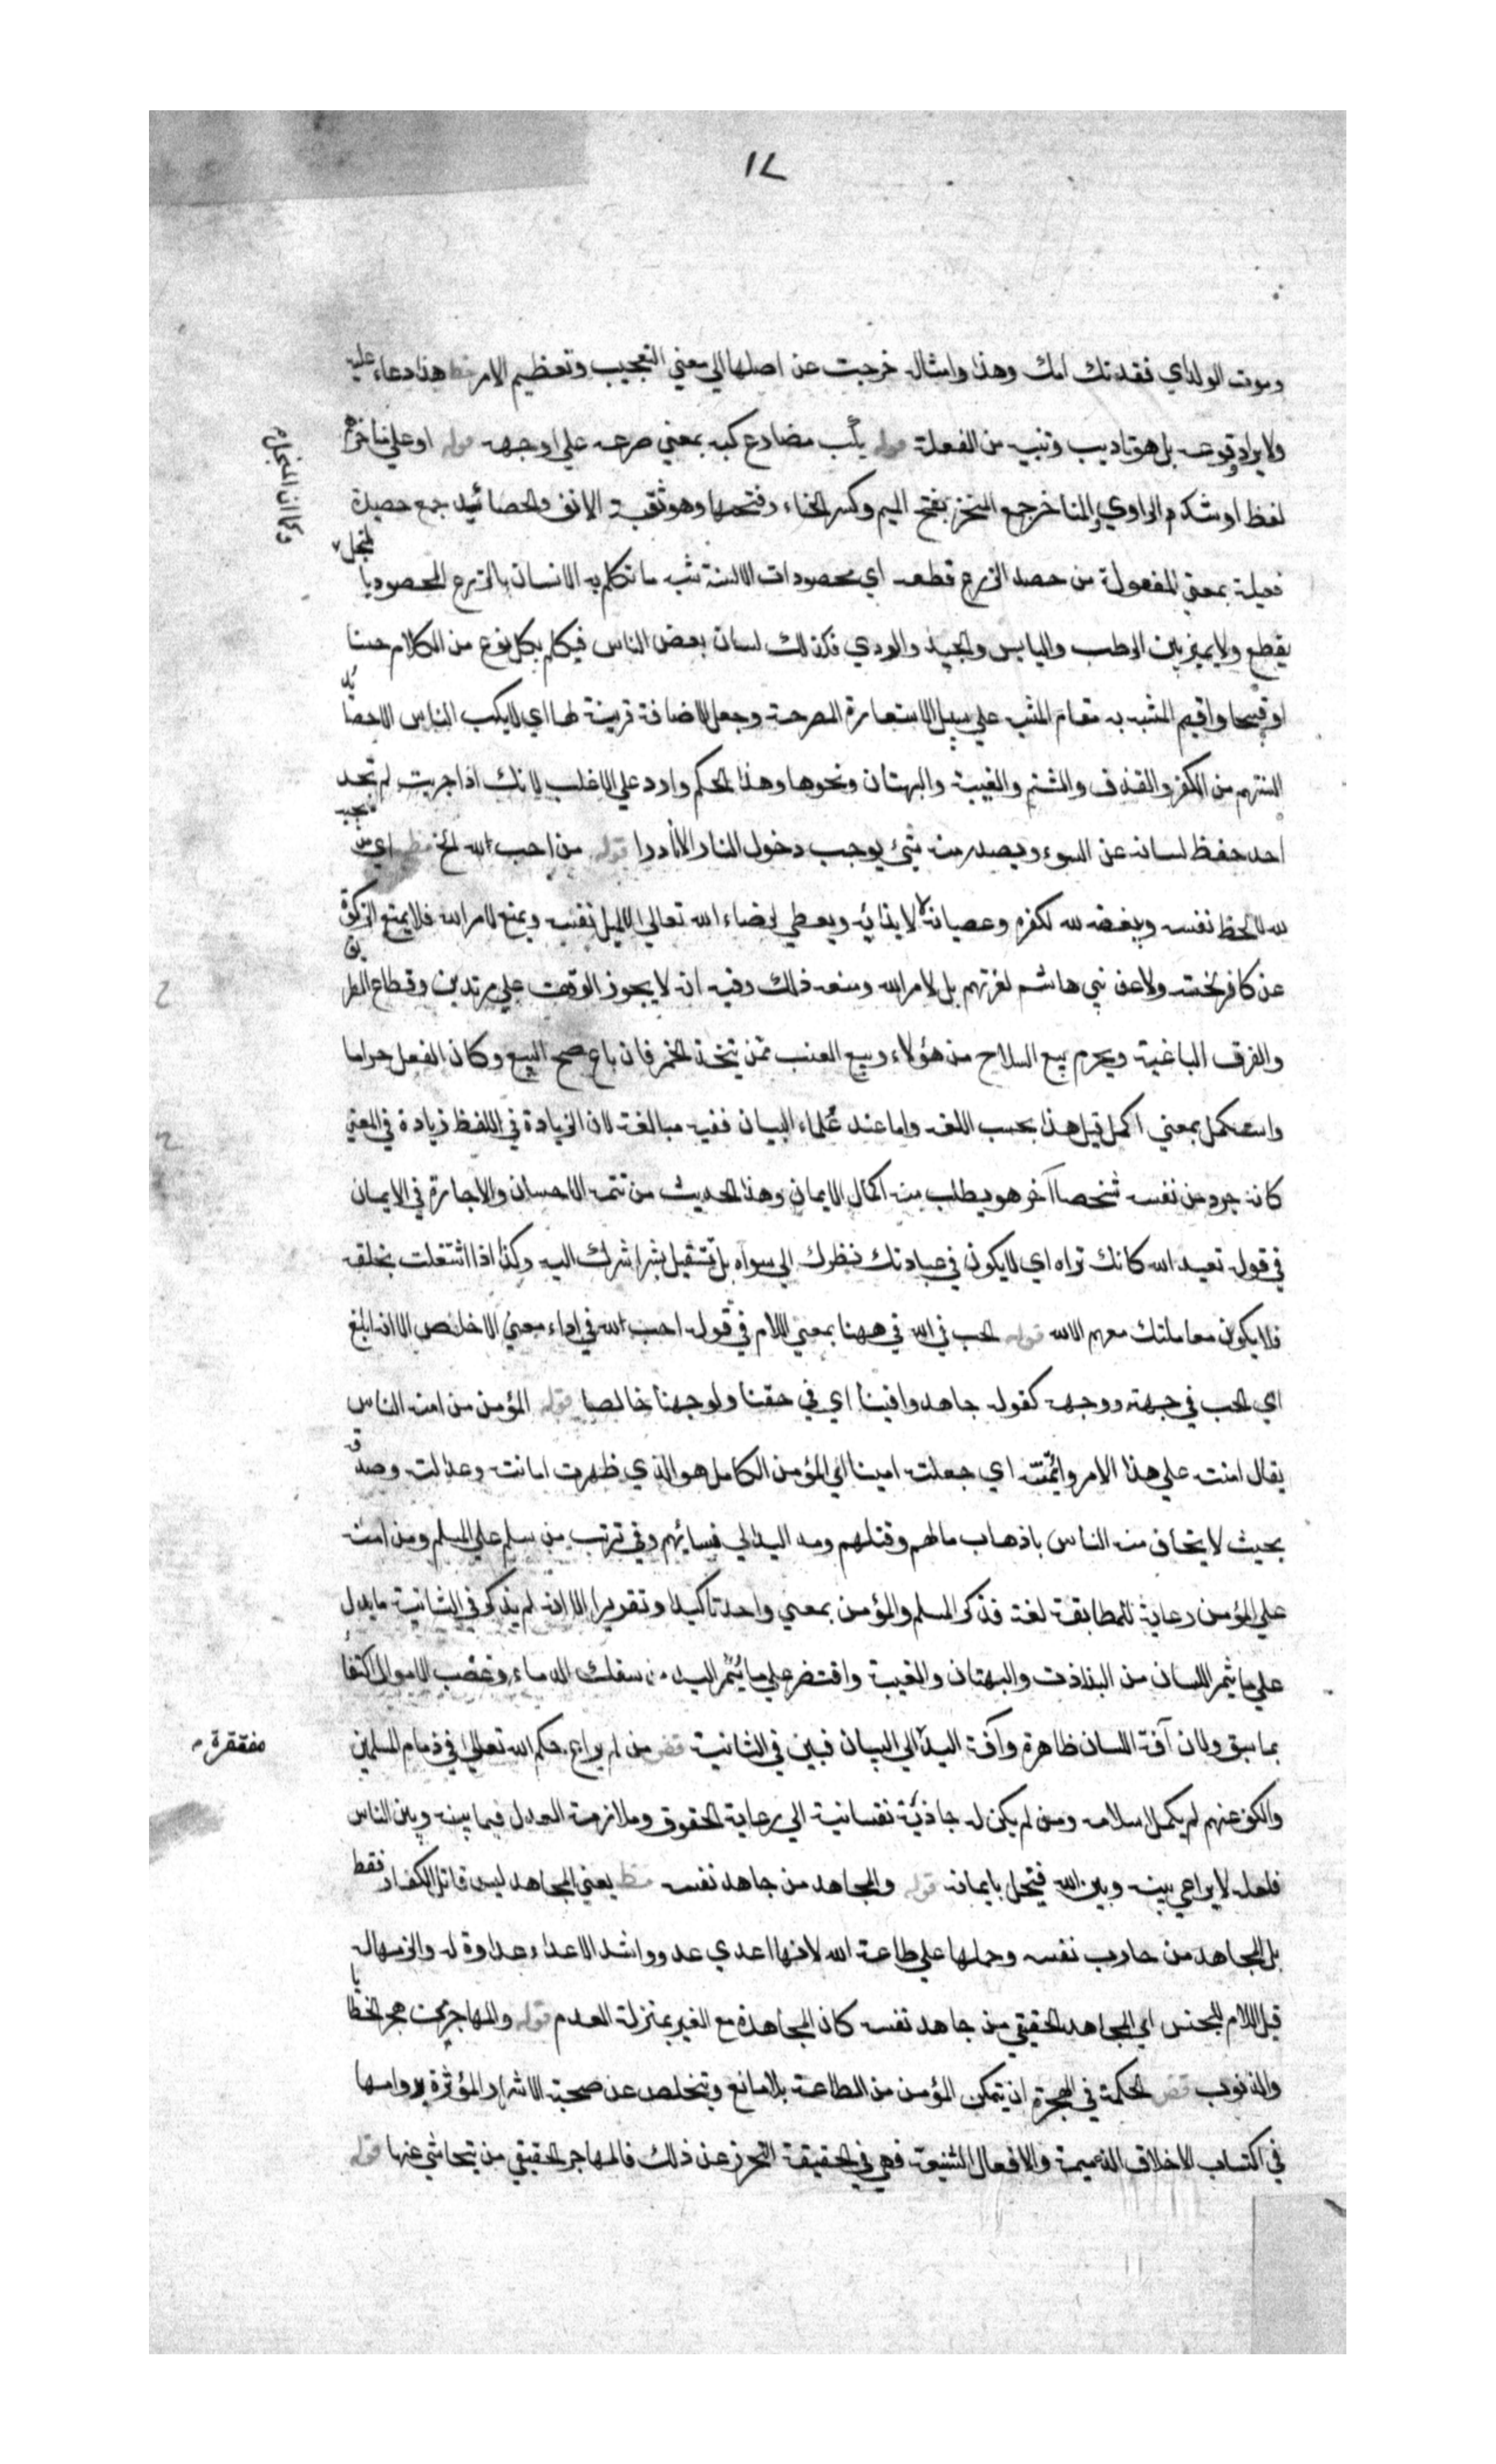 ١٧
وموت الولد اي فقدتك امك وهذا وامثاله خرجت عن اصلها الي معني التعجيب وتعظيم الامر مظ هذا دعاء عليه
ولا يراد وقوعه بل هو تاديب وتنبيه من الغفلة قوله يكب مضارع كبه بمعني صرعه علي وجهه قوله او علي مناخرهم
لفظ او شك من الراوي والمناخر جمع المنخر بفتح الميم وكسر الخاء وفتحها وهو ثقبة الانف والحصائد جمع حصيدة
فعيلة بمعني المفعولة من حصد الزرع قطعه اي محصودات الالسنة شبه ما تكلم به الانسان بالزرع المحصود بالمنجل
وكما ان المنجل
يقطع ولا يميز بين الرطب واليابس والجيد والردي فكذلك لسان بعض الناس فيكلم بكل نوع من الكلام حسنا
او قبيحا واقيم المشبه به مقام المشبه علي سبيل الاستعارة المصرحة وجعل الاضافة قرينة لها اي لا يكب الناس الا حصائد
السنتهم من الكفر والقذف والشتم والغيبة والبهتان ونحوها وهذا الحكم وارد علي الاغلب لانك اذا جربت لم تجد
احد حفظ لسانه عن السوء ويصدر منه شيئ يوجب دخول النار الا نادرا قوله من احب لله الخ مظ اي من يحبه
لله لا لحظ نفسه ويبغضه لله لكفره وعصيانه لا لايذائه ويعطي لرضاء الله تعالي لا لميل نفسه ويمنع لامر الله فلا يمنع الزكوة
عن كافر لخسته ولا عن بني هاشم لعزتهم بل لامر الله ومنعه ذلك وفيه انه لا يجوز الوقف علي مرتدين وقطاع الطريق
والفرق الباغية ويحرم بيع السلاح من هؤلاء وبيع العنب ممن يتخذ الخمر فان باع صح البيع وكان الفعل حراما
واستكمل بمعني اكمل قيل هذا بحسب اللغة واما عند علماء البيان ففيه مبالغة لان الزيادة في اللفظ زيادة في المعني
كانه جرد من نفسه شخصا آخر هو يطلب منه اكمال الايمان وهذا الحديث من تتمة الاحسان والاجارة في الايمان
في قوله تعبد الله كانك تراه اي لا يكون في عبادتك نظرك الي سواه بل تستقبل بشراشرك اليه وكذا اذا اشتغلت بخلقه
فلا يكون معاملتك معهم الا لله قوله الحب في الله في ههنا بمعني اللام في قوله احب لله في اداء معني الاخلاص الا انه ابلغ
اي الحب في جهته ووجهه كقوله جاهدوا فينا اي في حقنا ولوجهنا خالصا قوله المؤمن من امنه الناس
يقال امنته علي هذا الامر وائتمنته اي جعلته امينا اي المؤمن الكامل هو الذي ظهرت امانته وعدالته وصدقه
بحيث لا يخاف منه الناس باذهاب مالهم وقتلهم ومد اليد الي نسائهم وفي ترتب من سلم علي المسلم ومن امنه
علي المؤمن رعاية للمطابقة لغة فذكر المسلم والمؤمن بمعني واحد تاكيدا وتقريرا الا انه لم يذكر في الثانية ما يدل
علي ما يثمر اللسان من البذاذت والبهتان والغيبة واقتصر علي ما يثمر اليد من سفك الدماء وغصب الاموال اكتفاء
بما سبق ولان آفة اللسان ظاهرة وآفة اليد الي البيان فبين في الثانية قض من لم يراع حكم الله تعالي في ذمام المسلمين
مفتقرة
والكف عنهم لم يكمل اسلامه ومن لم يكن له جاذبة نفسانية الي رعاية الحقوق وملازمة العدل فيما بينه وبين الناس
فلعله لا يراعي بينه وبين الله فيتخل بايمانه قوله والمجاهد من جاهد نفسه مظ يعني المجاهد ليس قاتل الكفار فقط
بل المجاهد من حارب نفسه وحملها علي طاعة الله لانها اعدي عدو واشد الاعداء عداوة له
قيل اللام للجنس اي المجاهد الحقيقي من جاهد نفسه كان المجاهدة مع الغير بمنزلة العدم قوله والمهاجر من هجر الخطايا
والذنوب قض الحكمة في الهجرة ان يتمكن المؤمن من الطاعة بلا مانع ويتخلص عن صحبة الاشرار المؤثرة بدوامها
في اكتساب الاخلاق الذميمة والافعال الشنيعة فهي في الحقيقة التحرز عن ذلك فالمهاجر الحقيقي من يتحاشي عنها قوله